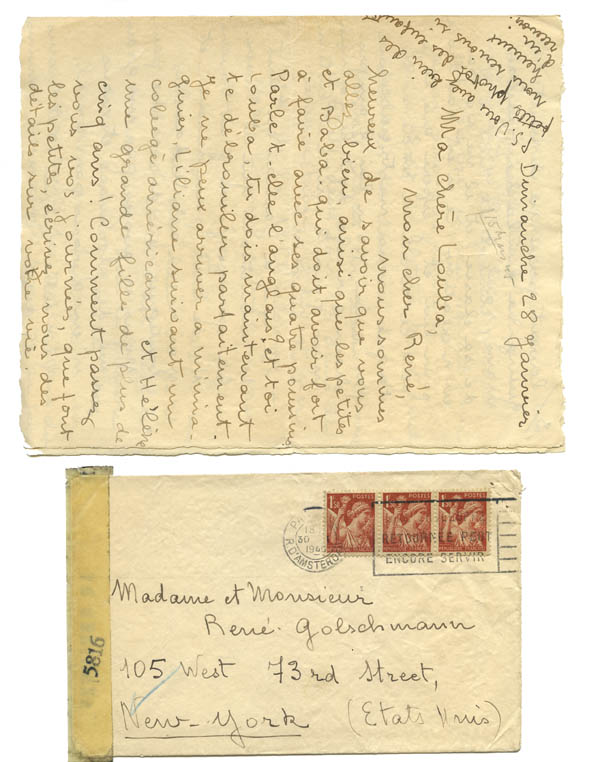 Dimanche 28 Janvier
Ma chère Louba,
mon cher René,
nous sommes
heureux de savoir que vous
allez bien, ainsi que les petites
et Baba. qui doit avoir fort
à faire avec ses quatre poussins
Parle t-elle l'anglais? et toi
Louba, tu dois maintenant
te débrouiller parfaitement.
je ne peux arriver à m'ima-
giner, Liliane suivant un
collège américain et Hélène
une grande fille de plus de
cinq ans! Comment passez
vous vos journées, que font
les petites, écrivez nous des
détails sur votre vie.
P.S. Si vous avez bien des
petites photos des enfants
nous serions si
heureux
d'en
recevoir.
1F POSTES
1F POSTES
1F POSTES
18
30
R. D'AMSTERDAM
RETOURNÉ PEUT
ENCORE SERVIR
5816
Madame et Monsieur
René Golschmann
105 West 73rd Street,
New-York (Etats Unis)